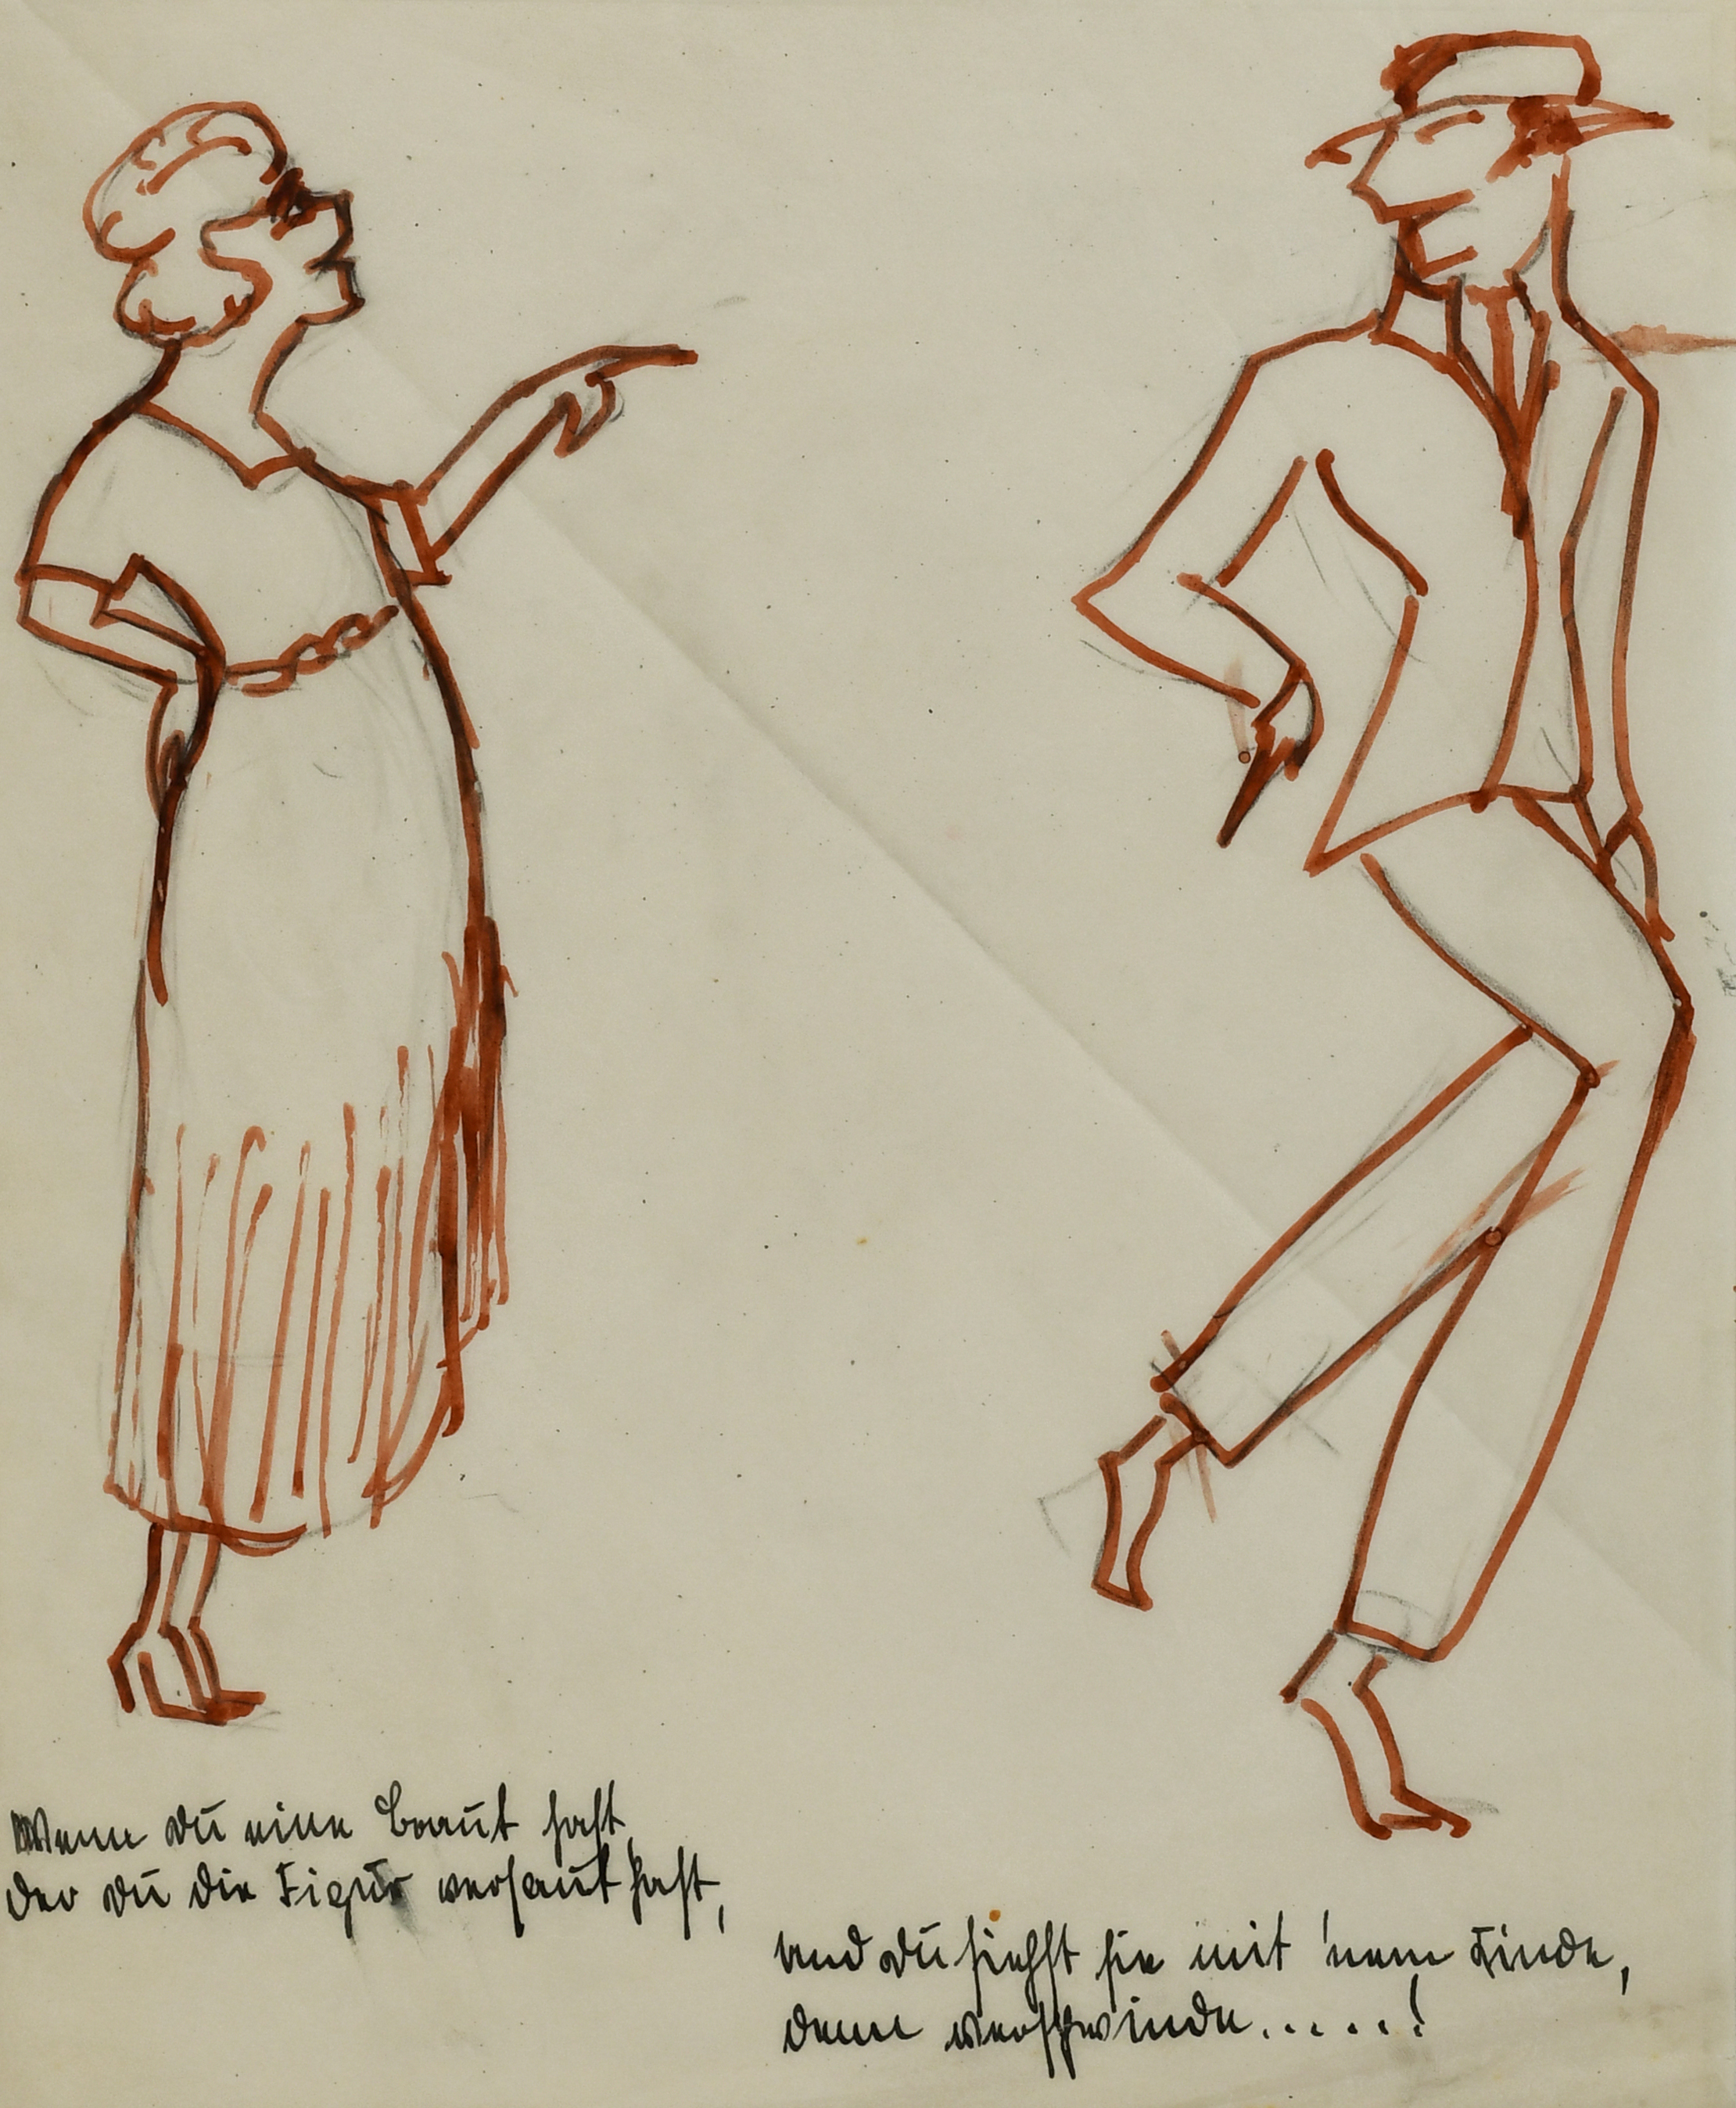 Wenn du eine Braut hast
der du die Figur versaut hast,
und du siehst sie mit 'nem Kinde,
denn verschwinde.....!